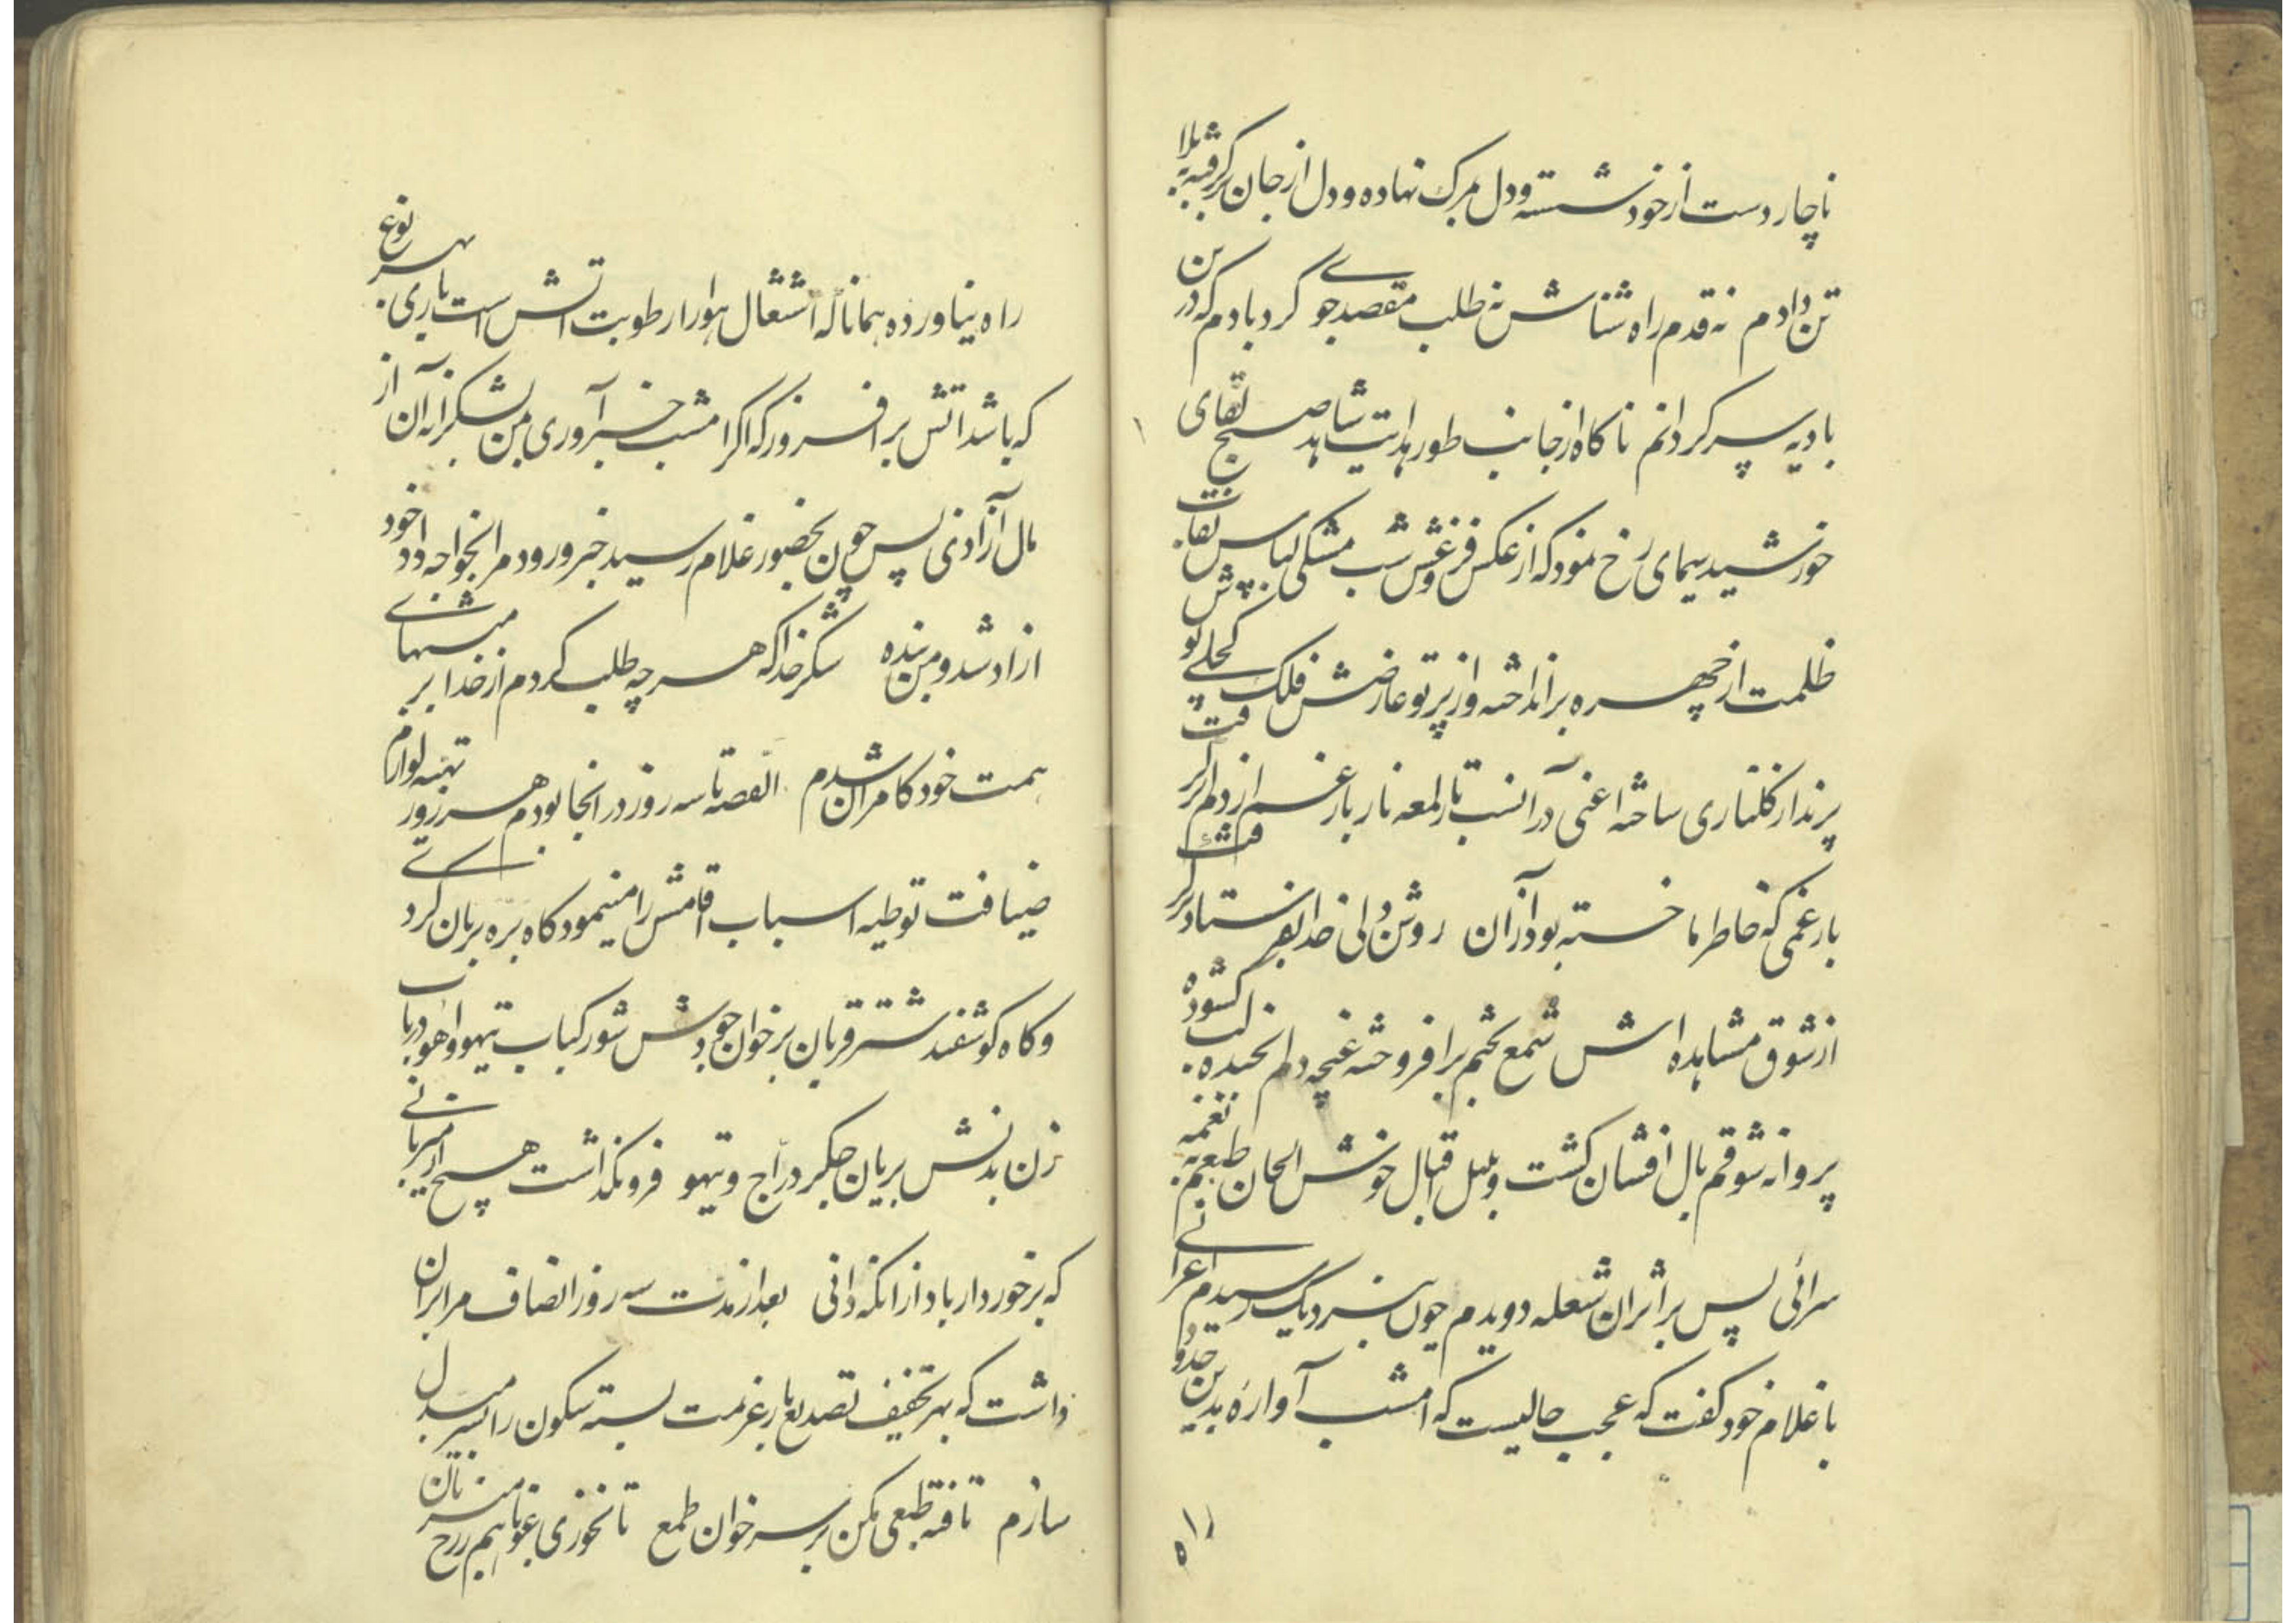 ناچار دست از خود شسته و دل بمرک نهاده و دل از جان برکرفته ببلا
تن دادم نه قدم راه شناش نه طلب مقصد جوی کردبادم که درین
بادیه سرکردانم ناکاه از جانب طور هدایت شاهد صبح لقای
خورشید سیمای رخ نمود که از عکس فروغش شب مشکی لباس نقاب
ظلمت از چهره برانداخته و از پرتو عارضش فلک کحلی پوش
پرندار کلناری ساخته اعنی در آنشب تار لمعه نار بار غم از دلم برکرفت
بار غمی که خاطر ما خسته بود از آن روشن دلی خدا بفرستاد برکرفت
از شوق مشاهده اش شمع بختم برافروخته غنچه دلم بخنده لب کشوده
پروانه شوقم بال افشان کشت و بلبل اقبال خوش الحان طبعم بنغمه
سرائی پس بر اثر ان شعله دویدم چون نزدیک رسیدم اعرابی
با غلام خود کفت که عجب حالیست که امشب آواره بدین حدود
راه نیاورده همانا که اشتعال هوا را رطوبت اتش است باری بهر نوع
که باشد اتش برافروز که اکر امشب خبر آوری بمن بشکرانه آن از
مال آزادی پس چون بحضور غلام رسید خبر ورود مرا بخواجه داد خود
ازاد شد و من بنده شکر خدا که هر چه طلب کردم از خدا بر منتهای
همت خود کامران شدم القصه تا سه روز در انجا بودم هر روز تهیه لوازم
ضیافت توطیه اسباب اقامتش را مینمود کاه بره بریان کردی
و کاه کوشفند شتر قربان بر خوان جودش شور کباب تیهو و اهو در باب
زن بدنش بریان جکر دراج و تیهو فرونکذاشت هیچ از میزبانی
که برخوردار باد از انکه دانی بعد از مدت سه روز انصاف مرا بران
داشت که بهر تخفیف تصدیع بار عزیمت بسته سکون را بسیر مبدل
سازم تا فته طبعی مکن بر سر خوان طمع تا نخوری